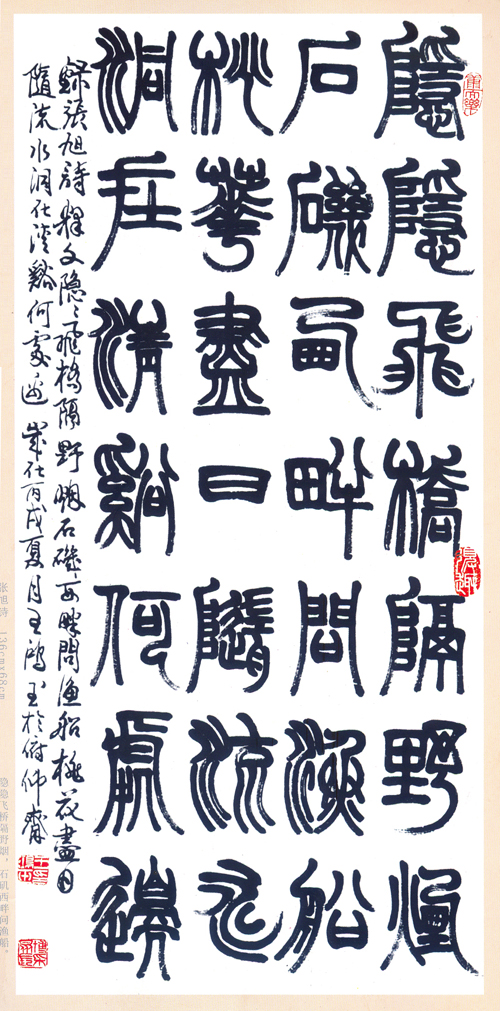 隱隱飛橋隔野煙
石磯西畔問漁船
桃華盡日隨流水
洞在清谿何處邊
錄張旭詩釋文隐〻飛橋隔野烟石磯西畔問渔船桃花盡日
隨流水洞在清谿何處邊 歲在丙戌夏月王鸿玉於俯仰齋
张旭诗 136cm×68cm
隐隐飞桥隔野烟，石矶西畔问渔船。